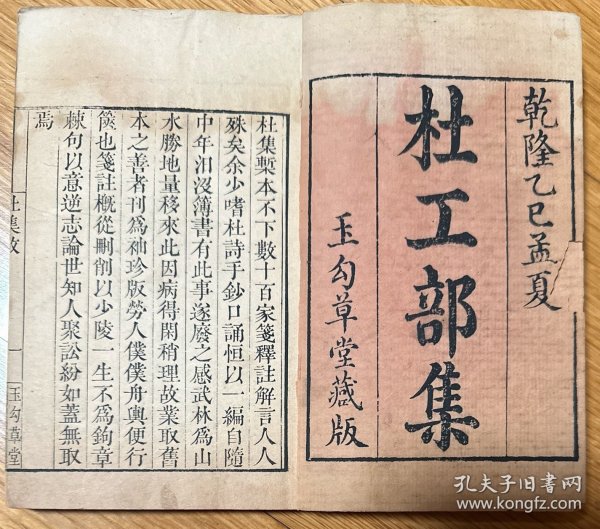 乾隆乙巳孟夏
杜工部集
玉勾草堂藏版
杜集槧本不下數十百家箋釋註解言人人
殊矣余少嗜杜詩手鈔口誦恒以一編自隨
中年汩沒簿書有此事遂廢之感武林爲山
水勝地量移來此因病得閑稍理故業取舊
本之善者刊爲袖珍版勞人僕僕舟輿便行
篋也箋註概從刪削以少陵一生不爲鉤章
棘句以意逆志論世知人聚訟紛如蓋無取
焉
杜集
一
玉勾草堂
孔夫子旧书网
www.kongfz.com